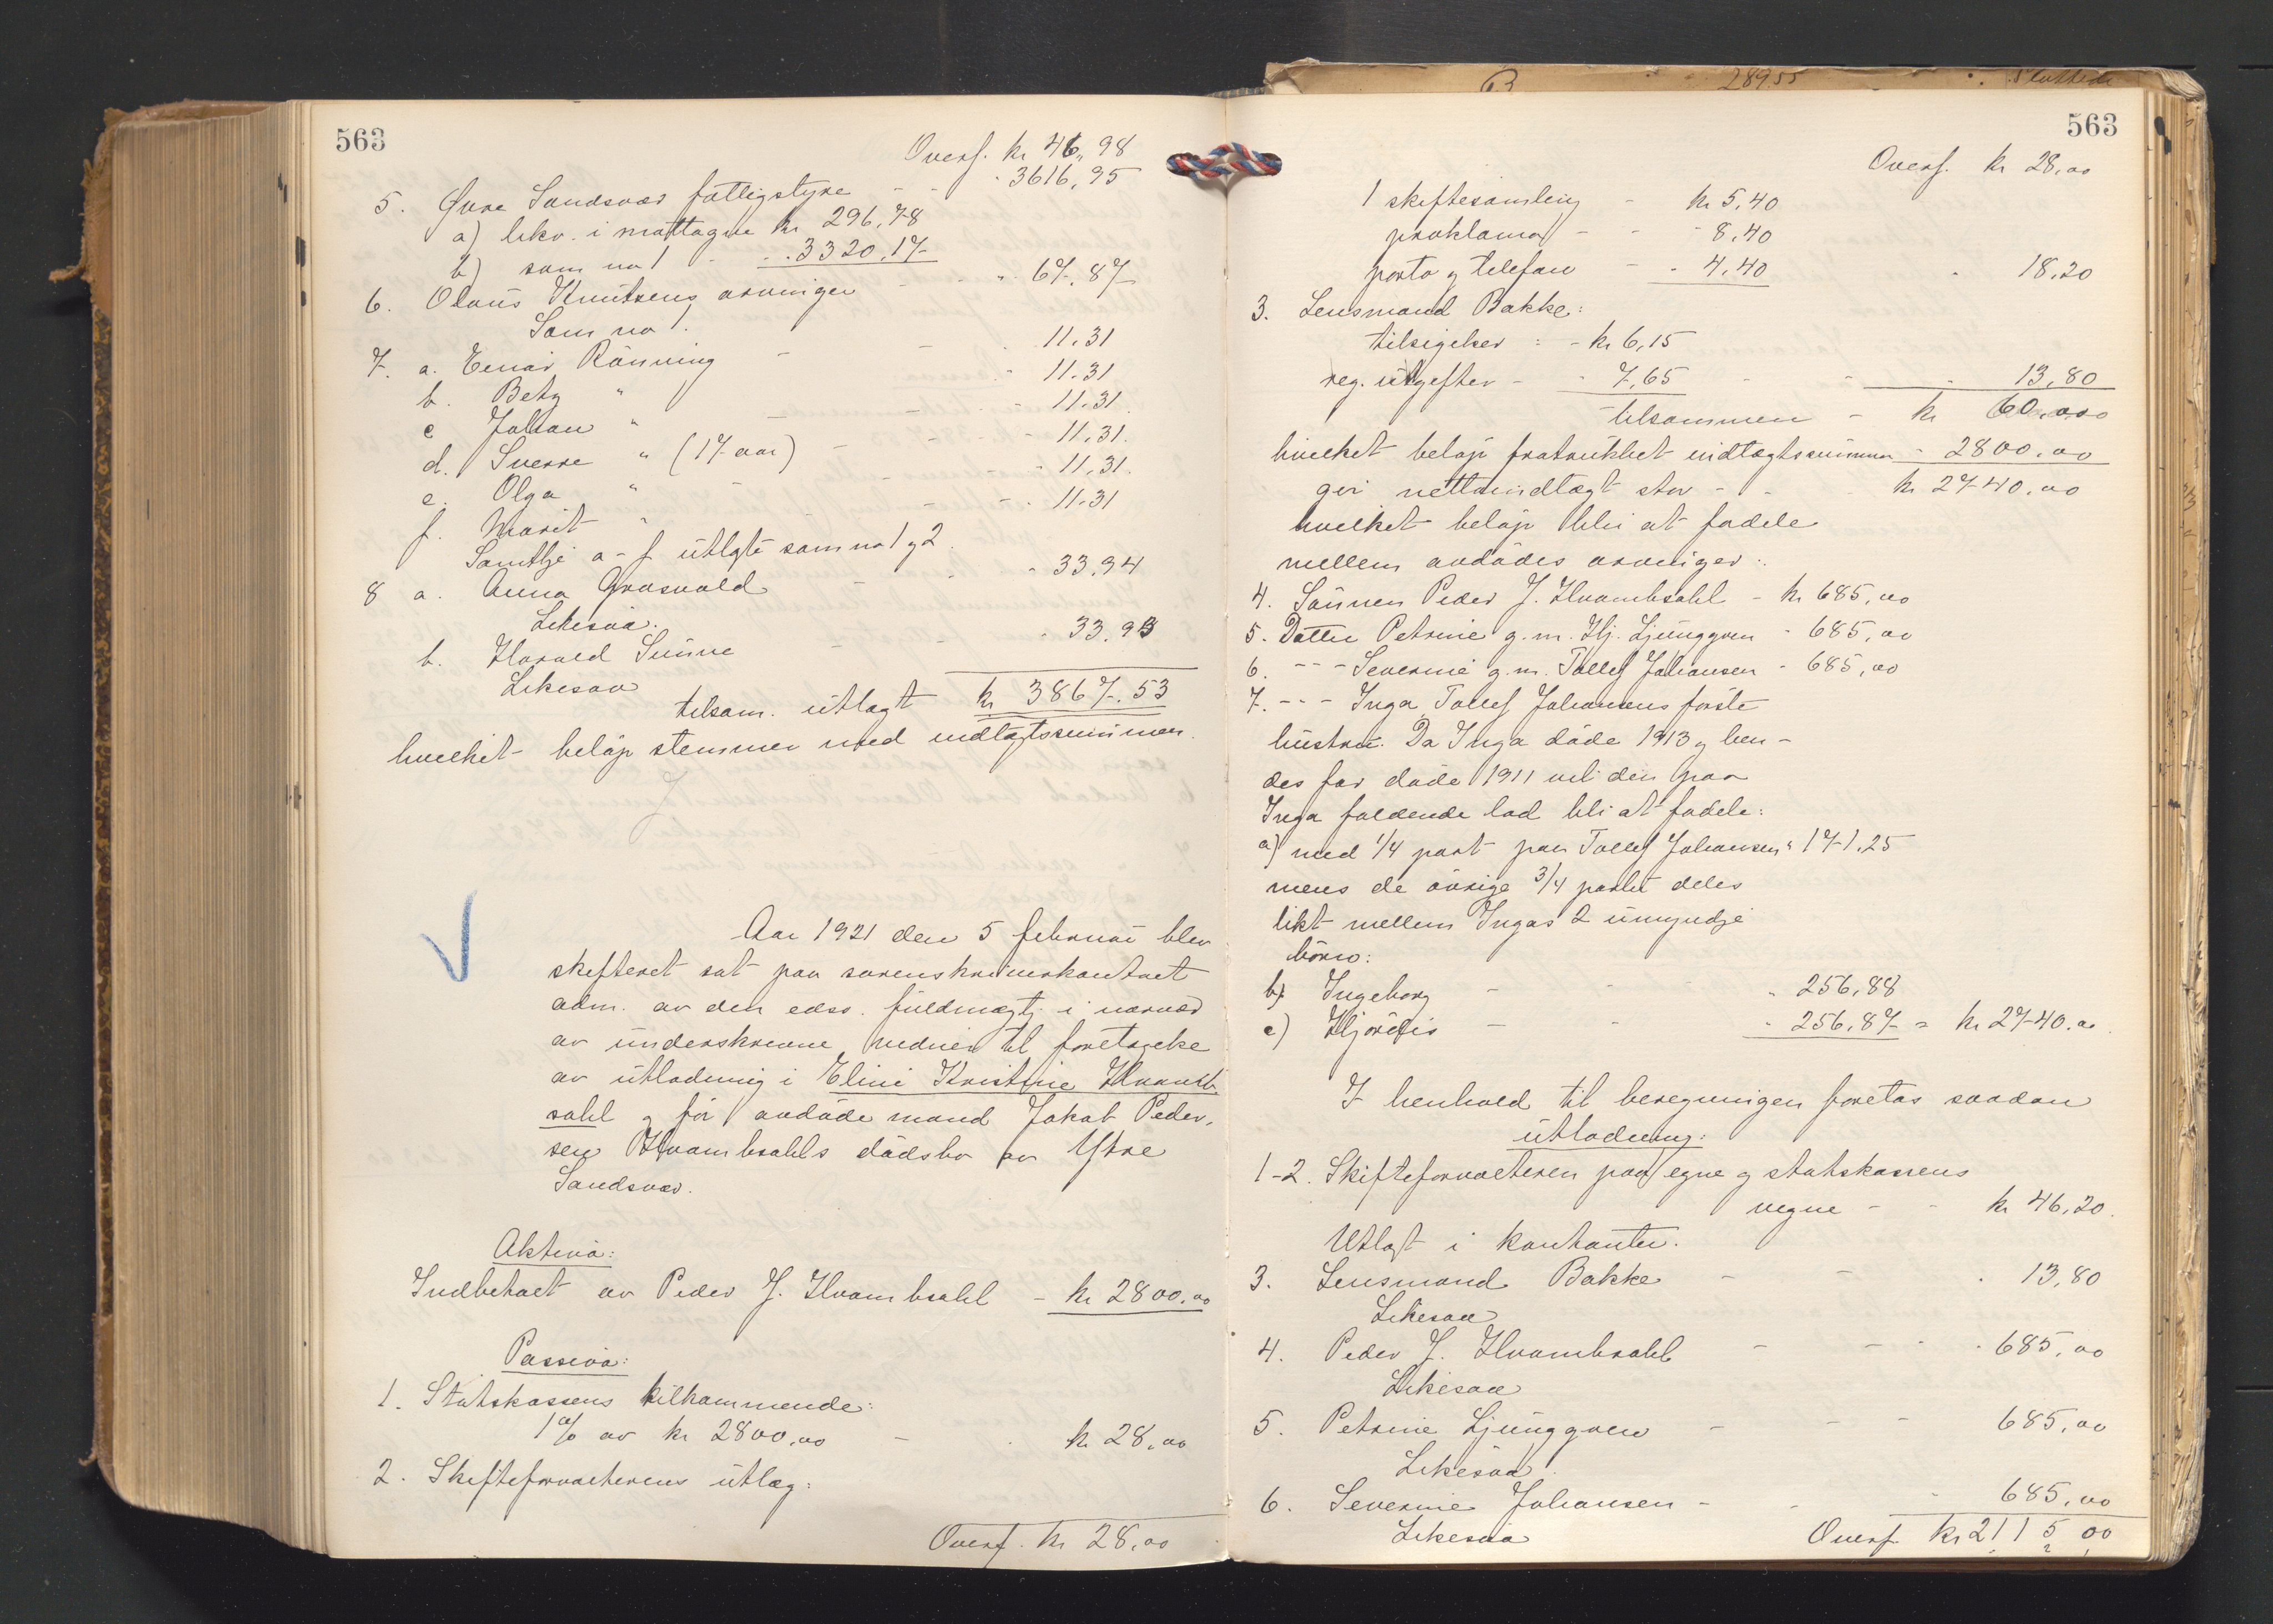 563
Overf. kr 46,98
5. Øvre Sandsvær fattigstyre - - " 3616,95
a) likv. i mottagne kr 296,78
b) som no 1 - - " 3320,17
6. Olaus Knutsens arvinger - - " 67,87
Som no 1.
7. a. Einar Rönning - - " 11.31
b. Betzy " - " 11.31
c Johan " - " 11.31
d. Sverre " (17 aar) - - " 11.31.
e. Olga " - - " 11.31.
f. Marit " - - " 11.31
Samtlige a - f utlagte som no 1 og 2.
8 a. Anna Grosvold - - " 33.94
Likesaa.
b. Harald Sunne - - " 33.93
Likesaa
tilsam. utlagt kr 3867.53
hvilket beløp stemmer med indtægtssummen.
Aar 1921 den 5 februar blev
skifteret sat paa sorenskriverkontoret
adm. av den edsv. fuldmægtig i nærvær
av underskrevne vidner til foretagelse
av utlodning i Eline Kristine Hvamb-
sahl og før avdøde mand Jakob Peder-
sen Hvambsahls dødsbo av Ytre
Sandsvær.
Aktiva:
Indbetalt av Peder J. Hvambsahl - kr 2800,00
Passiva:
1. Statskassens tilkommende:
1% av kr 2800,00 - - kr 28,00
2. Skifteforvalterens utlæg:
Overf. kr 28,00
563
Overf. kr 28,00
1 skiftesamling - kr 5,40
proklama - - " 8,40
porto og telefon - " 4,40 " 18,20
3. Lensmand Bakke:
tilsigelser : - kr 6,15
reg. utgifter - " 7,65 - - " 13,80
tilsammen - kr 60,00
hvilket beløp fratrukket indtægtssummen - 2800,00
gir nettoindtægt stor - - kr 2740,00
hvilket beløp blir at fordele
mellem avdødes arvinger:
4. Sønnen Peder J. Hvambsahl - kr 685,00
5. Datter Petrine g.m. Hj. Ljunggren - 685,00
6. - - - Severine g.m. Tollef Johansen - 685,00
7. - - - Inga Tollef Johansens første
hustru. Da Inga døde 1913 og hen-
des far døde 1911 vil den paa
Inga faldende lod bli at fordele:
a) med 1/4 part paa Tollef Johansen " 171,25
mens de øvrige 3/4 parter deles
likt mellem Ingas 2 umyndige
børn:
b) Ingeborg - - - " 256,88
c) Hjørdis - - " 256,87 = kr 2740.00
I henhold til beregningen foretas saadan
utlodning:
1-2. Skifteforvalteren paa egne og statskassens
vegne - - kr 46,20.
Utlagt i kontanter.
3. Lensmand Bakke - - " 13,80
Likesaa
4. Peder J. Hvambsahl - - - " 685,00
Likesaa
5. Petrine Ljunggren - - - 685,00
Likesaa.
6. Severine Johansen - - - 685,00
Likesaa
Overf. kr 2115,00